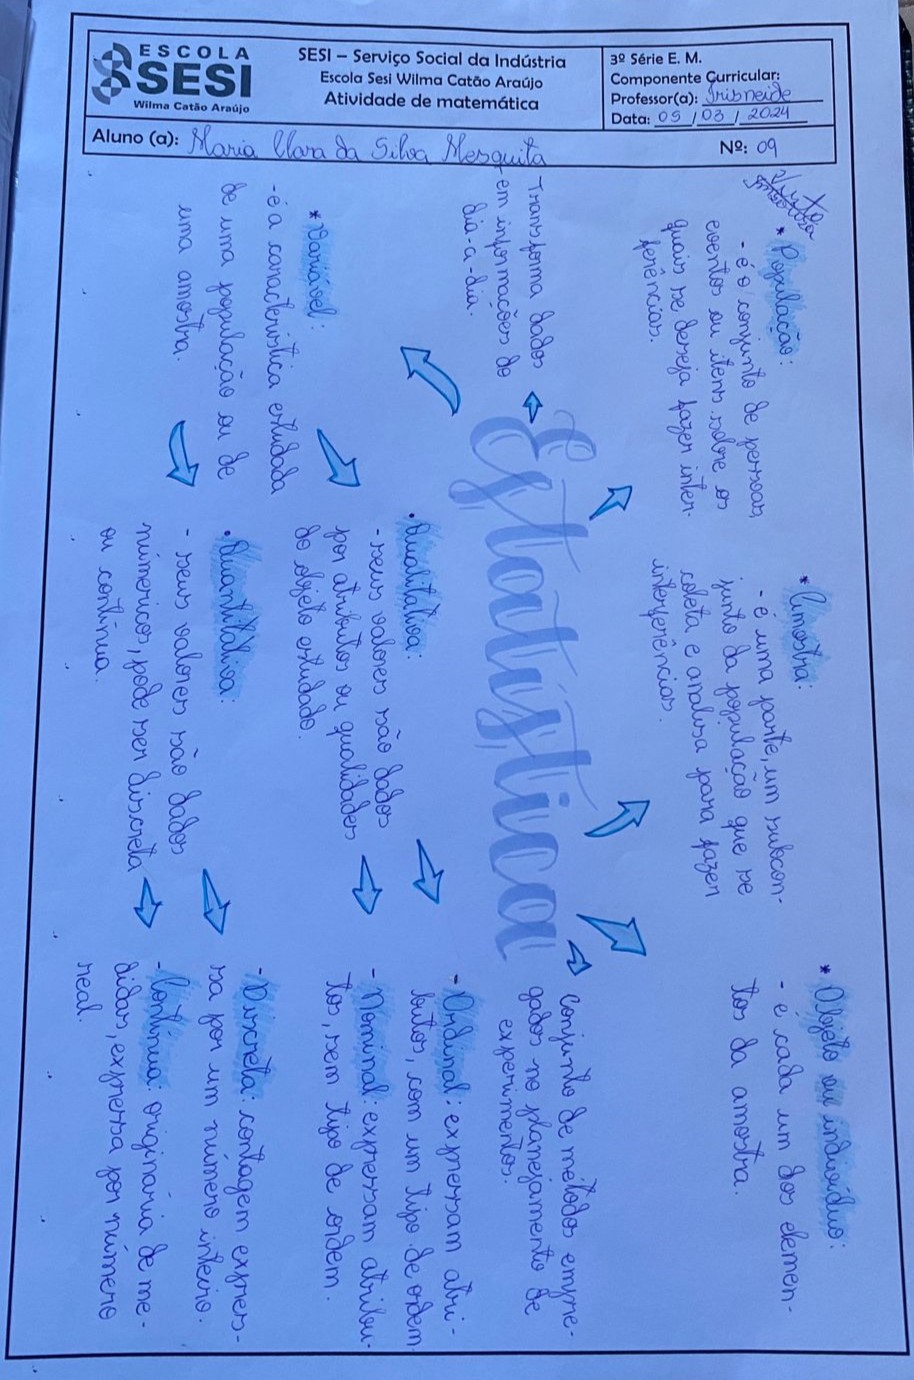 ESCOLA
SESI
Wilma Catão Araújo
SESI – Serviço Social da Indústria
Escola Sesi Wilma Catão Araújo
Atividade de matemática
3º Série E. M.
Componente Curricular:
Professor(a): Irisneide
Data: 05 / 03 / 2024
Aluno (a): Maria Clara da Silva Mesquita
Nº: 09
* População:
- é o conjunto de pessoas,
eventos ou itens sobre os
quais se deseja fazer inter-
ferências.
* Amostra:
- é uma parte, um subcon-
junto da população que se
coleta e analisa para fazer
interferências.
* Objeto ou indivíduo:
- é cada um dos elemen-
tos da amostra.
Transforma dados
em informações do
dia-a-dia.
Estatística
Conjunto de métodos empre-
gados no planejamento de
experimentos.
* Variável:
- é a característica estudada
de uma população ou de
uma amostra.
• Qualitativa:
- seus valores são dados
por atributos ou qualidades
do objeto estudado.
- Ordinal: expressam atri-
butos, com um tipo de ordem
- Nominal: expressam atribu-
tos, sem tipo de ordem.
• Quantitativa:
- seus valores são dados
númericos, pode ser discreta
ou contínua.
- Discreta: contagem expres-
sa por um número inteiro.
- Contínua: originária de me-
didas, expressa por número
real.